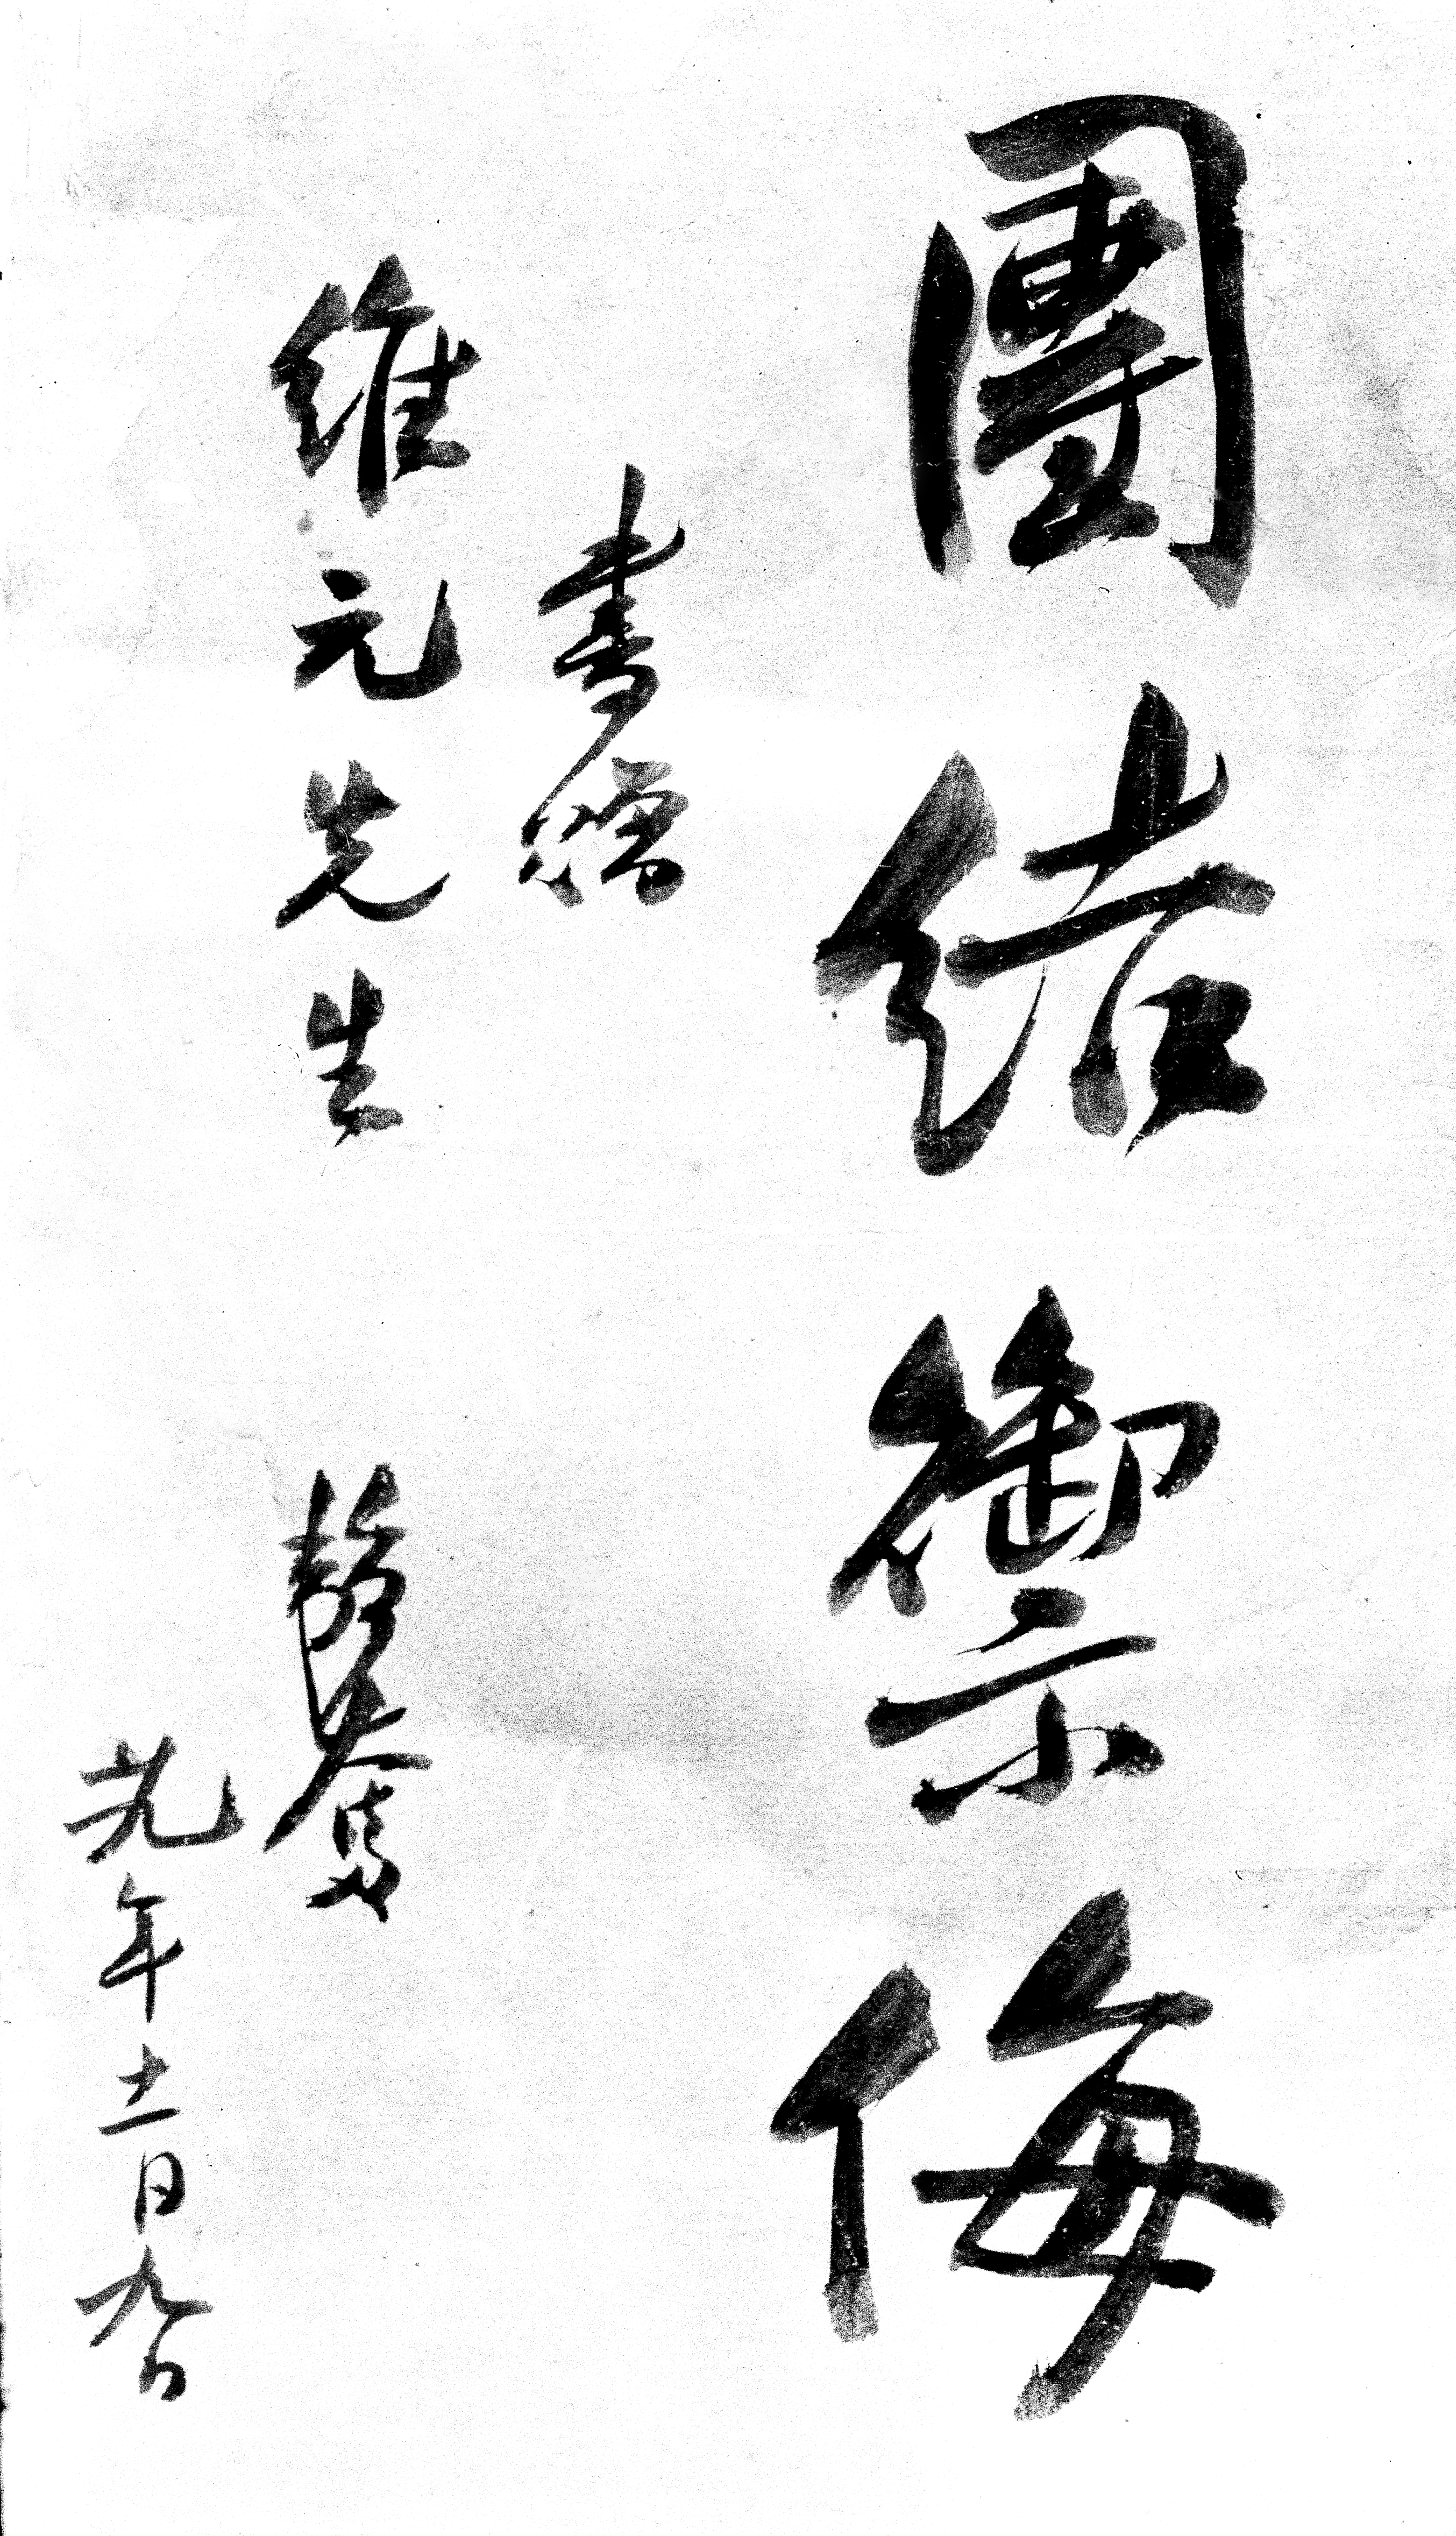 團結禦侮
書贈
維元先生 韜奮
廿九年十一月九日